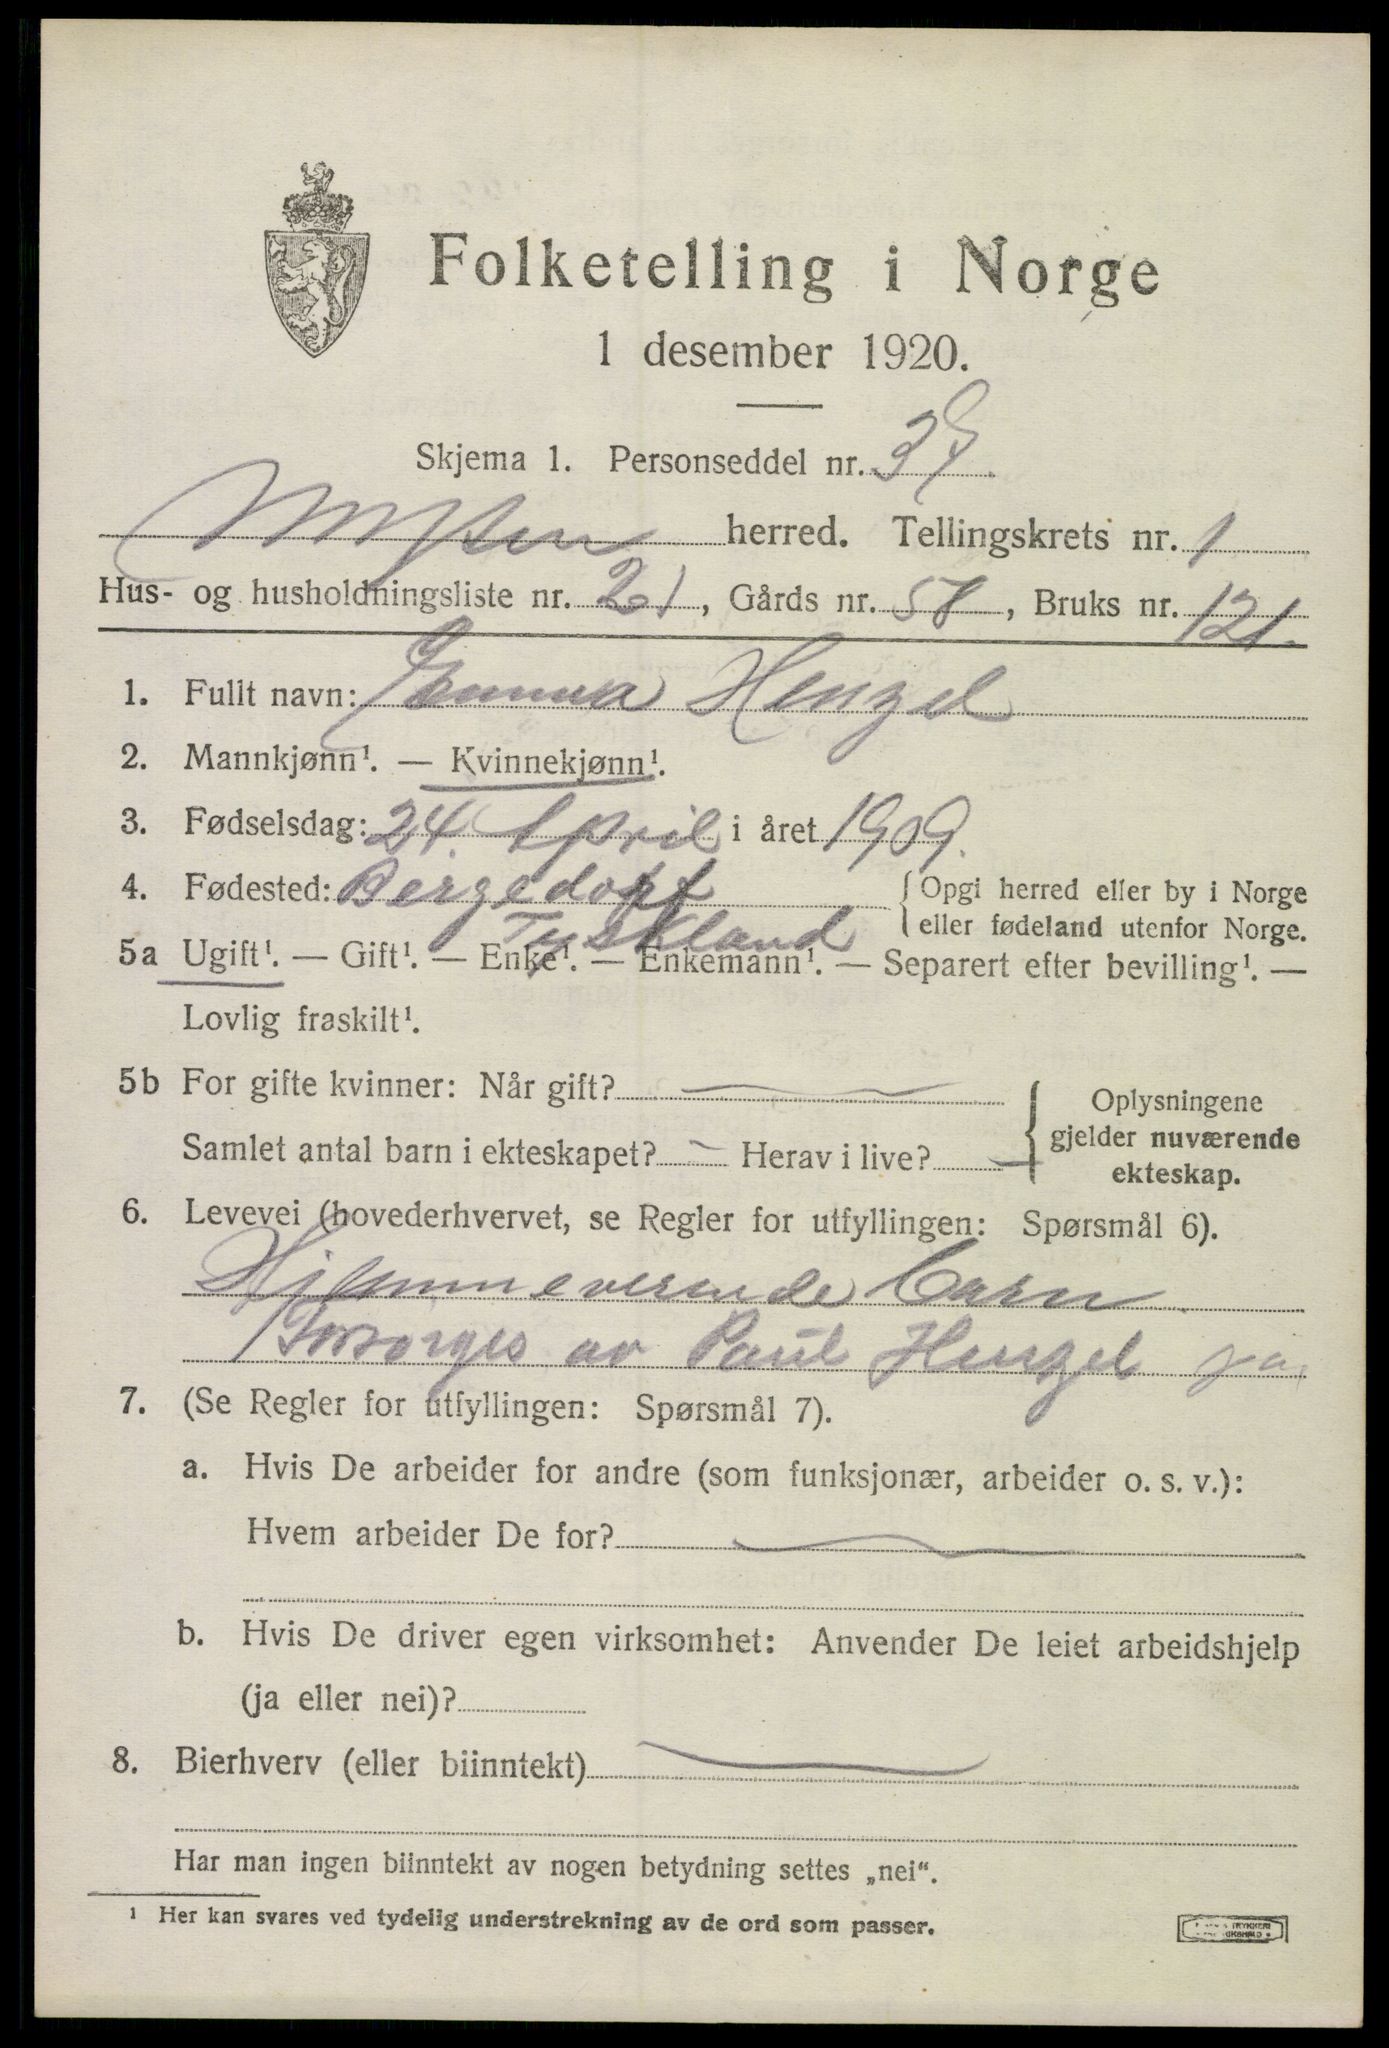 Folketelling i Norge
1 desember 1920.
Skjema 1. Personseddel nr. 37
herred. Tellingskrets nr. 1
Hus- og husholdningsliste nr. 21, Gårds nr. 58, Bruks nr. 121.
1. Fullt navn: Emma Henzel
2. Mannkjønn¹. — Kvinnekjønn¹.
3. Fødselsdag: 24. April i året 1909.
4. Fødested: Bergedorf {Opgi herred eller by i Norge
Tyskland eller fødeland utenfor Norge.
5a Ugift¹. — Gift¹. — Enke¹. — Enkemann¹. — Separert efter bevilling¹. —
Lovlig fraskilt¹.
5b For gifte kvinner: Når gift? — } Oplysningene
gjelder nuværende
Samlet antal barn i ekteskapet? — Herav i live? —
ekteskap.
6. Levevei (hovederhvervet, se Regler for utfyllingen: Spørsmål 6).
Hjemmeverende barn
Forsorges av Paul Henzel
7. (Se Regler for utfyllingen: Spørsmål 7).
a. Hvis De arbeider for andre (som funksjonær, arbeider o. s. v.):
Hvem arbeider De for? —
b. Hvis De driver egen virksomhet: Anvender De leiet arbeidshjelp
(ja eller nei)?
8. Bierhverv (eller biinntekt) —
Har man ingen biinntekt av nogen betydning settes „nei“.
¹ Her kan svares ved tydelig understrekning av de ord som passer.